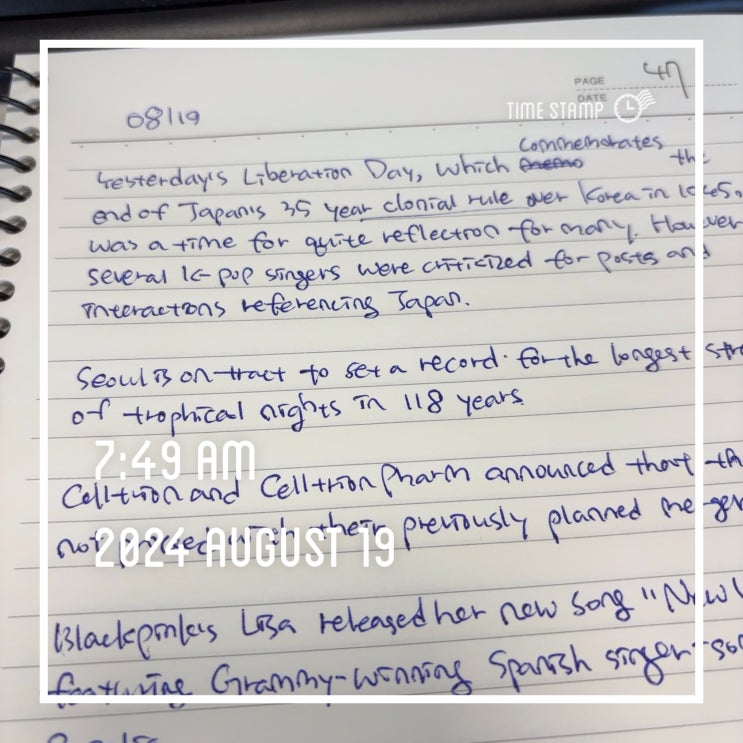 PAGE 47
DATE
08/19
TIME STAMP
commemorates
Yesterday's Liberation Day, which the
end of Japan's 35 year clonial rule over Korea in 1945,
was a time for quite reflection for many. However
several K-pop singers were criticized for posts and
interactions referencing Japan.
Seoul is on tract to set a record for the longest
of trophical nights in 118 years
7:49 AM
Celltrion and Celltrion Pharm announced that
not with their previously planned merger
2024 AUGUST 19
Blackpink's Lisa released her new song "New
featuring Grammy-winning Spanish singer-